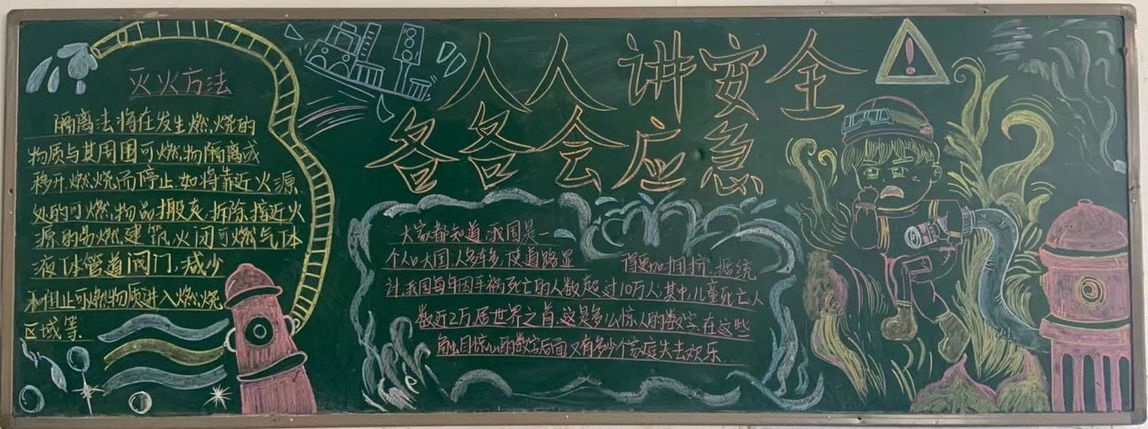 人人讲安全
各各会应急
灭火方法
隔离法将在发生燃烧的
物质与其周围可燃物隔离或
移开燃烧而停止.如将靠近火源
处的可燃物品搬 拆除接近火
源的易燃建筑火闭可燃气体
液体管道阀门,减少
和阻止可燃物质进入燃烧
区域等.
大家都知道,我国是一
个人口大国,人多车多,使道路显 得更加拥挤.据统
计,我国每年因车祸死亡的人数超过10万人,其中,儿童死亡人
数近2万居世界之首.这是多么惊人的数字,在这些
触目惊心的数字后面又有多少个家庭失去欢乐